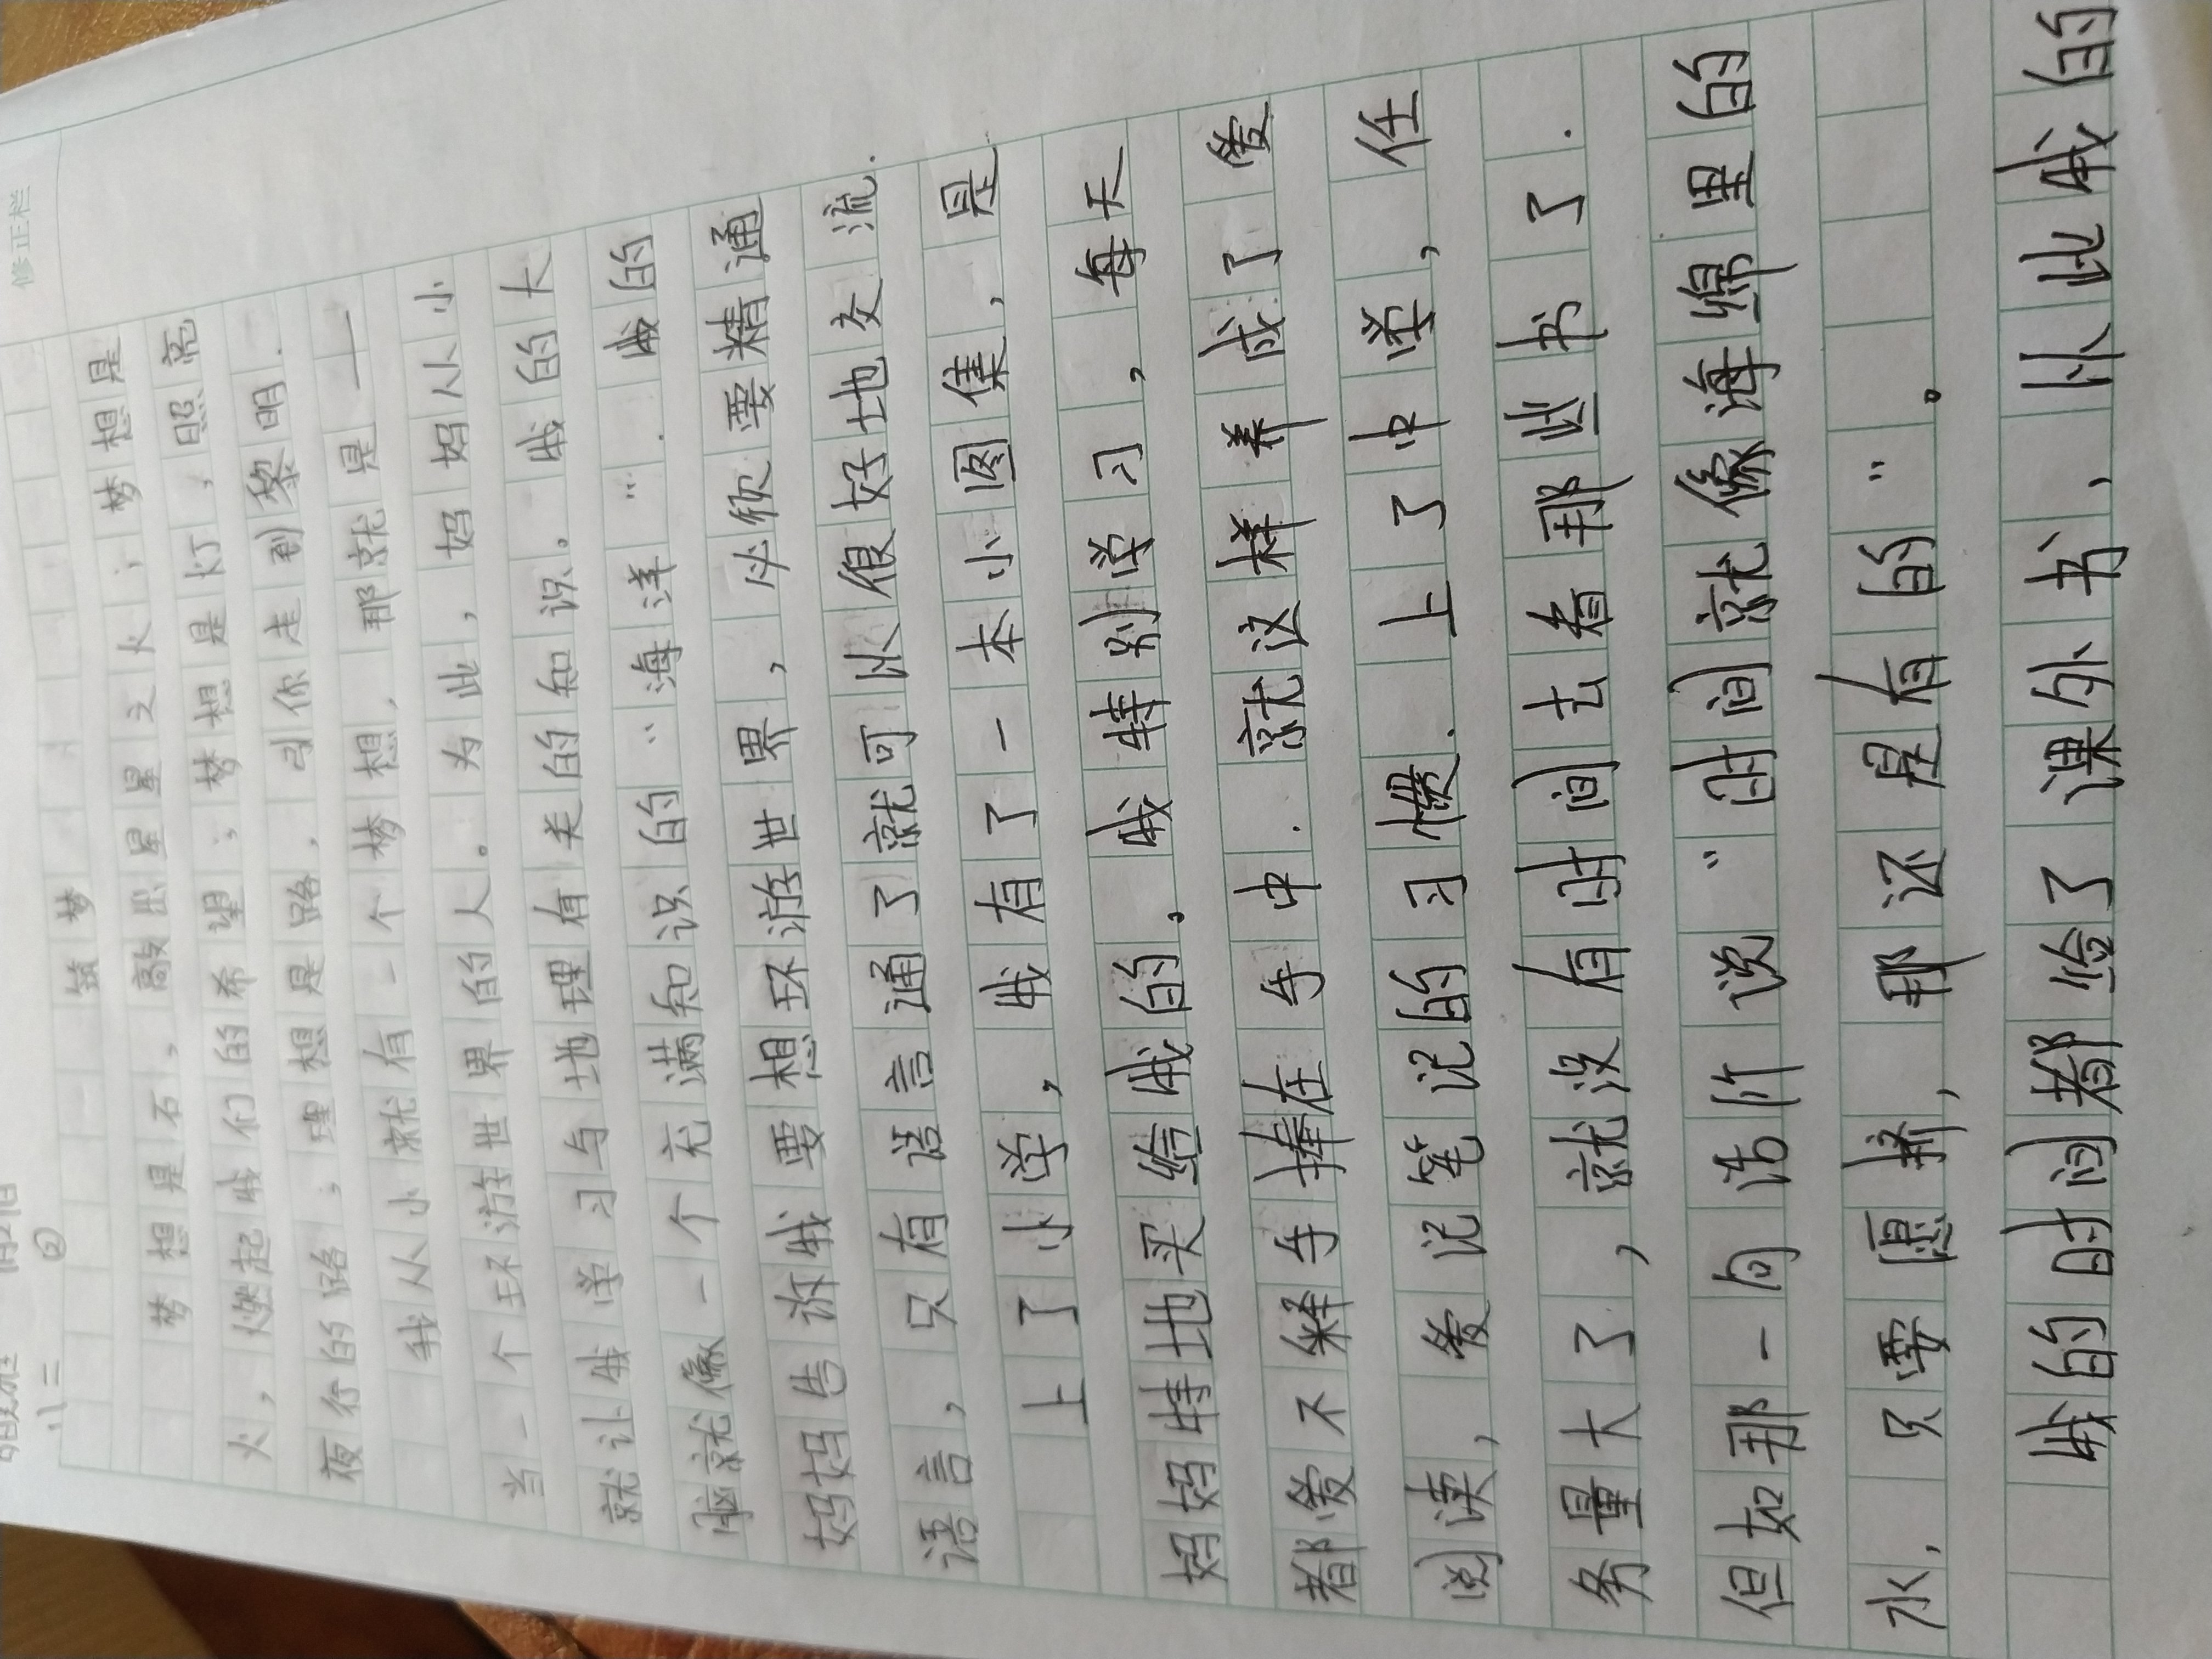 修正栏
筑梦
梦想是石，敲出星星之火；梦想是
火，燃起我们的希望；梦想是灯，照亮
夜行的路；理想是路，引你走到黎明.
我从小就有一个梦想，那就是——
当一个环游世界的人。为此，妈妈从小
就让我学习与地理有关的知识。我的大
脑就像一个充满知识的“海洋”.我的
妈妈告诉我要想环游世界，必须要精通
语言，只有语言通了就可以很好地交流.
上了小学，我有了一本小图集，是
妈妈特地买给我的。我特别学习，每天
都爱不释手捧在手中.就这样养成了爱
阅读，爱记笔记的习惯.上了中学，任
务量大了，就没有时间去看那些书了.
但如那一句话所说“时间就像海绵里的
水，只要愿挤，那还是有的”。
我的时间都给了课外书，从此我的